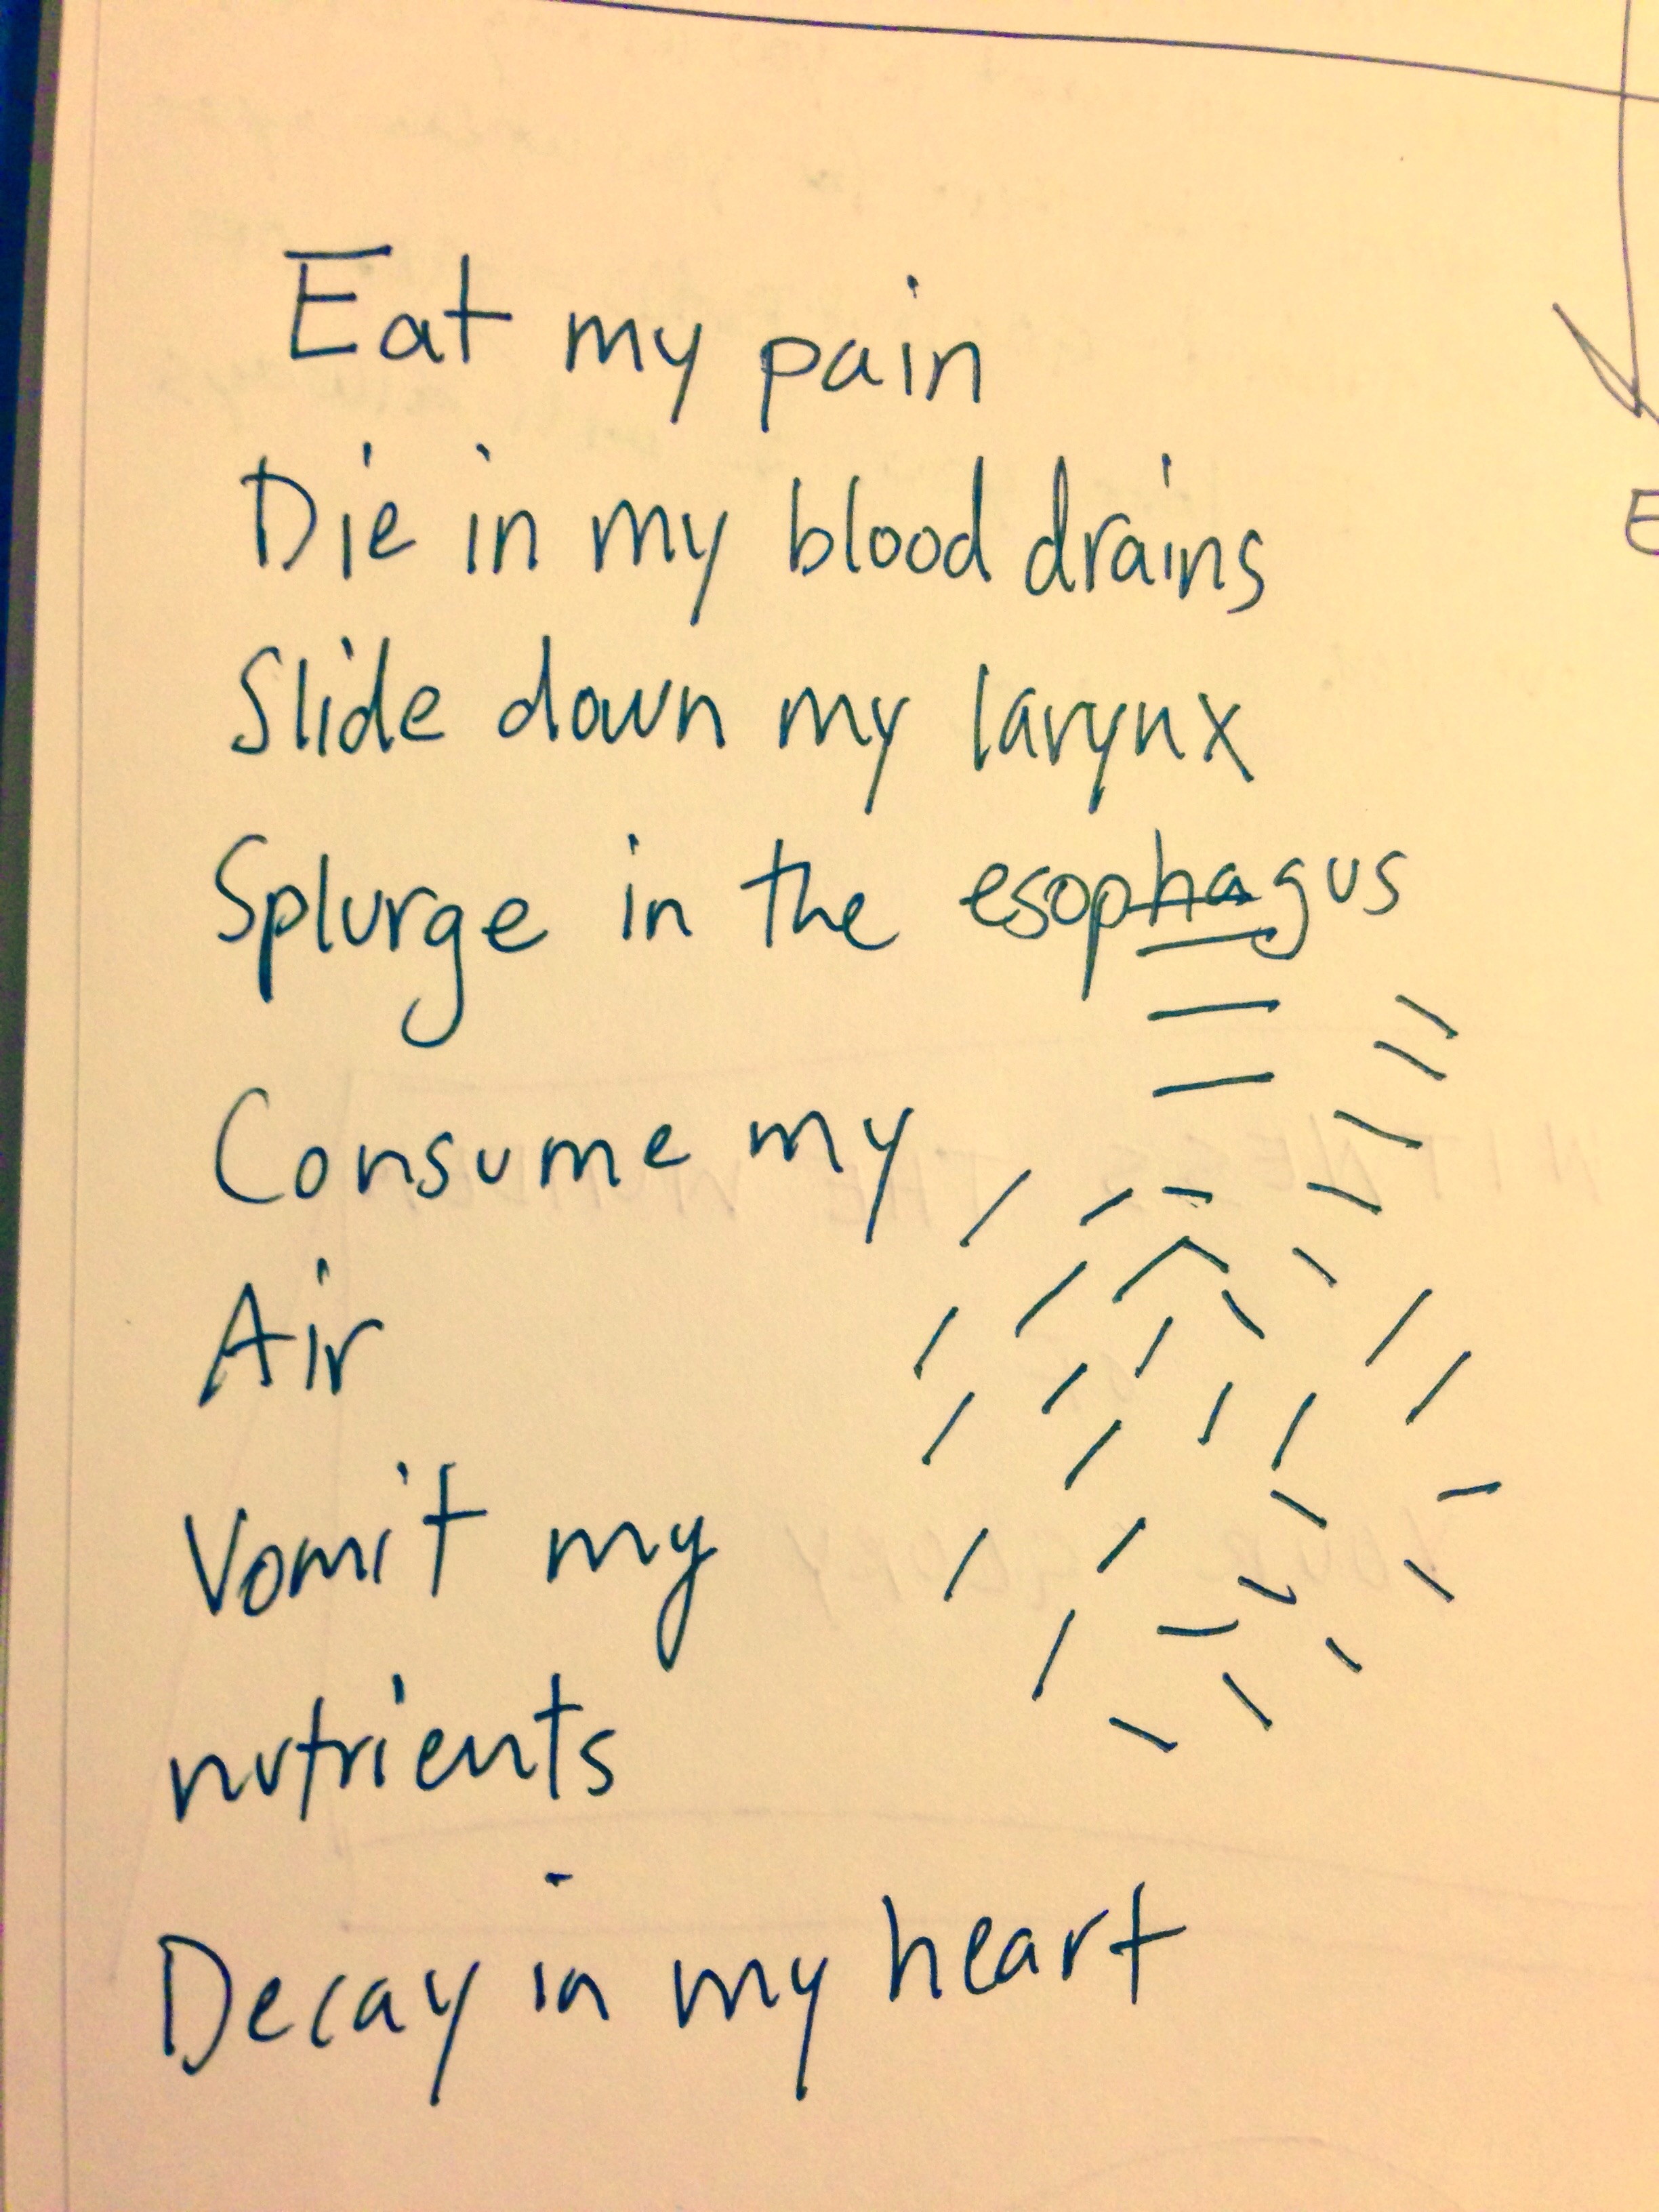 Eat my pain
Die in my blood drains
Slide down my larynx
Splurge in the esophagus
Consume my
Air
Vomit my
nutrients
Decay in my heart
E